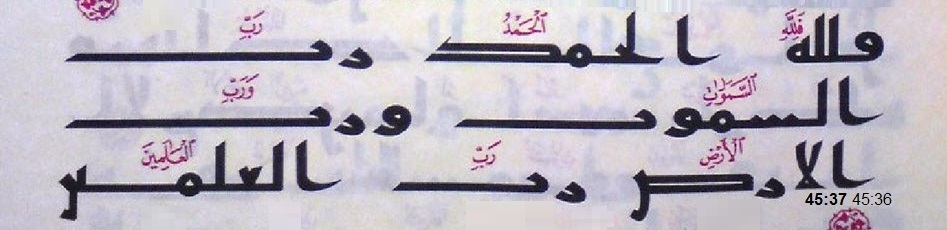 فَلِلَّهِ الْحَمْدُ رَبِّ
فلله الحمد رب
السَّمَوَتِ وَرَبِّ
السموت ورب
الْأَرْضِ رَبِّ الْعَالَمِينَ
الارض رب العلمين
45:37 45:36